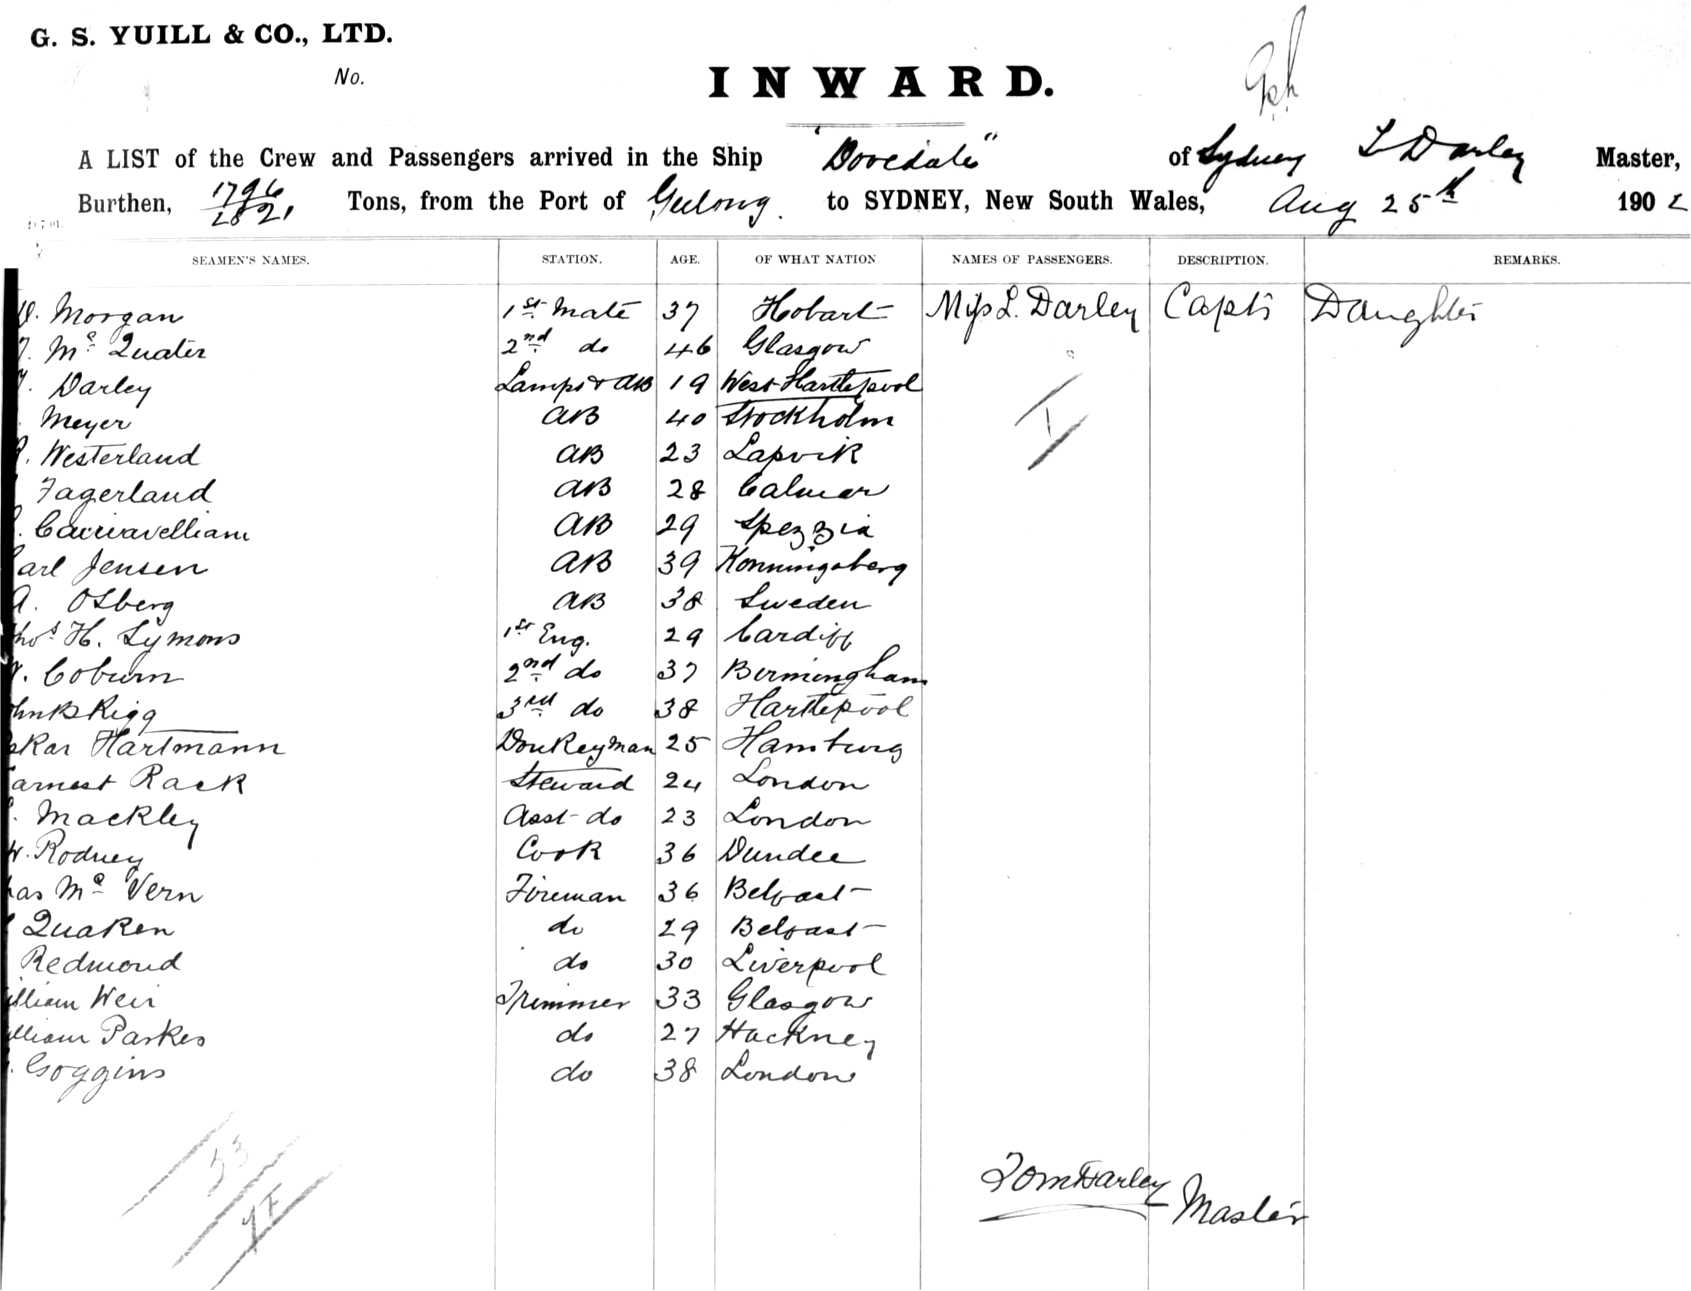 G. S. YUILL & CO., LTD.
No.
INWARD.
A LIST of the Crew and Passengers arrived in the Ship "Dovedale" of Sydney T Darley Master,
Burthen, 1796/2821 Tons, from the Port of Geelong. to SYDNEY, New South Wales, Aug 25th 1902
SEAMEN'S NAMES. STATION. AGE. OF WHAT NATION NAMES OF PASSENGERS. DESCRIPTION. REMARKS.
Morgan 1st Mate 37 Hobart Miss L. Darley Capt's Daughter
Mc Quater 2nd do 46 Glasgow
Darley Lamps & AB 19 West Hartlepool
Meyer AB 40 Stockholm
Westerland AB 23 Lapvik
Fagerland AB 28 Calmar
AB 29 Spezzia
arl Jensen AB 39 Konningsberg
A. Osberg AB 38 Sweden
hos H. Symons 1st Eng. 29 Cardiff
Coburn 2nd do 37 Birmingham
hn B Rigg 3rd do 38 Hartlepool
skar Hartmann Donkeyman 25 Hamburg
arnest Rack Steward 24 London
Mackley Asst do 23 London
W. Rodney Cook 36 Dundee
has Mc Vern Fireman 36 Belfast
Quaken do 29 Belfast
Redmond do 30 Liverpool
illiam Weir Trimmer 33 Glasgow
illiam Parkes do 27 Hackney
Goggins do 38 London
Tom Darley
Master